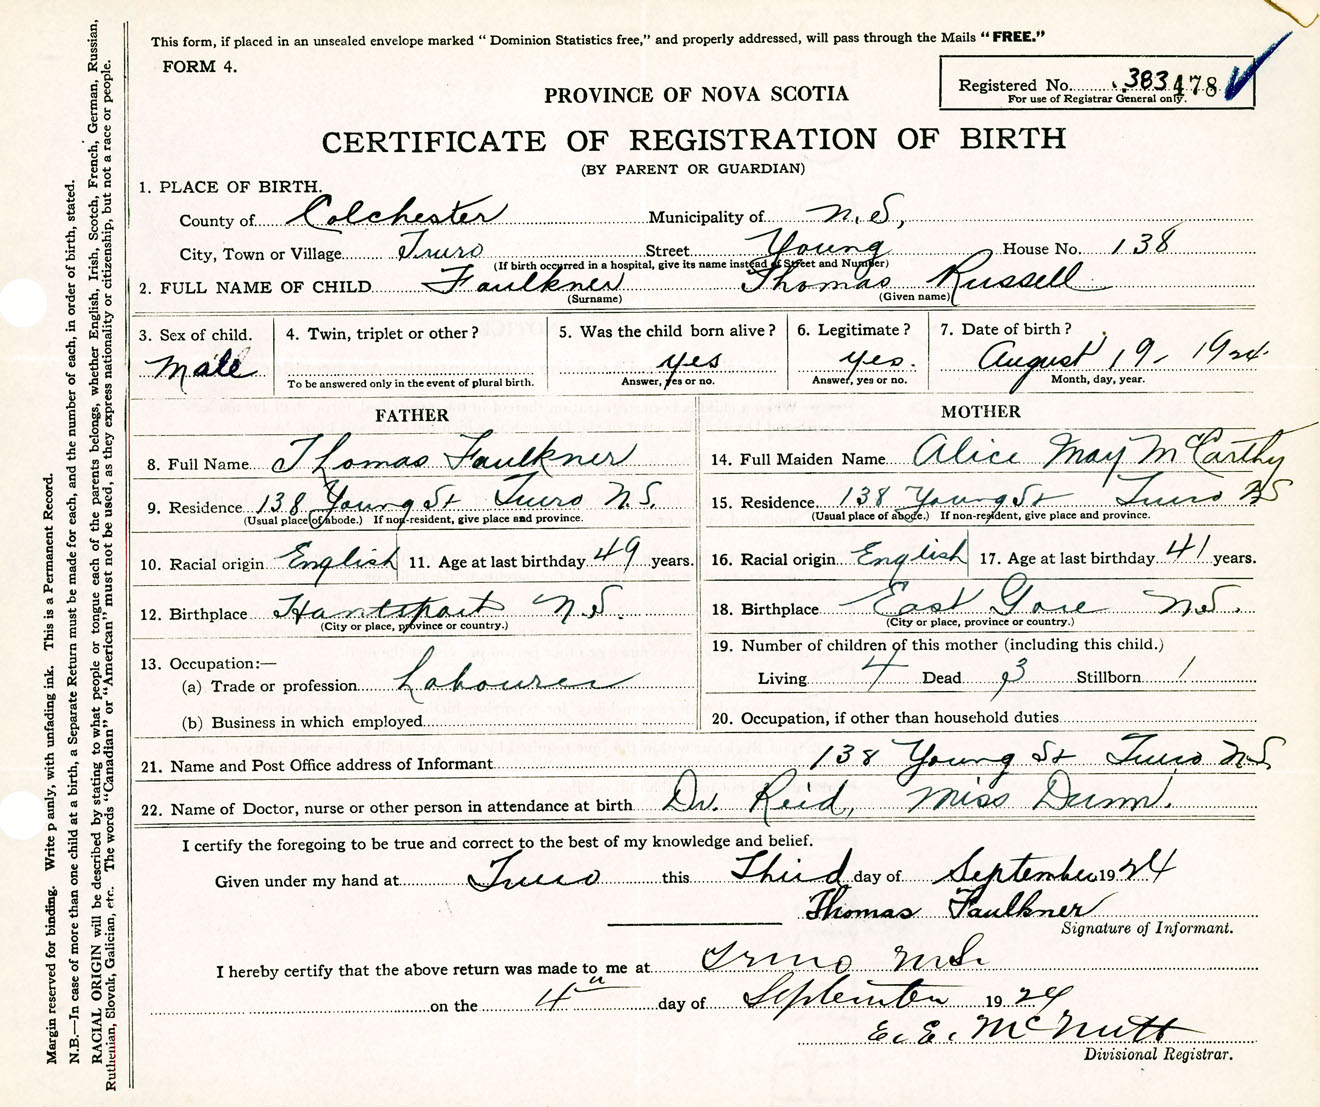 This form, if placed in an unsealed envelope marked “ Dominion Statistics free,” and properly addressed, will pass through the Mails “FREE.”
FORM 4.
Registered No. 383478
For use of Registrar General only.
PROVINCE OF NOVA SCOTIA
CERTIFICATE OF REGISTRATION OF BIRTH
(BY PARENT OR GUARDIAN)
1. PLACE OF BIRTH.
County of Colchester Municipality of N.S,
City, Town or Village Truro Street Young House No. 138
(If birth occurred in a hospital, give its name instead of Street and Number)
2. FULL NAME OF CHILD Faulkner Thomas Russell
(Surname) (Given name)
3. Sex of child. 4. Twin, triplet or other? 5. Was the child born alive? 6. Legitimate? 7. Date of birth?
Male yes yes. August 19 - 1924.
To be answered only in the event of plural birth. Answer, yes or no. Answer, yes or no. Month, day, year.
FATHER
8. Full Name Thomas Faulkner
9. Residence 138 Young St Truro N.S.
(Usual place of abode.) If non-resident, give place and province.
10. Racial origin English 11. Age at last birthday 49 years.
12. Birthplace Hantsport N.S.
(City or place, province or country.)
13. Occupation:—
(a) Trade or profession Labourer
(b) Business in which employed
MOTHER
14. Full Maiden Name Alice May McCarthy
15. Residence 138 Young St Truro NS
(Usual place of abode.) If non-resident, give place and province.
16. Racial origin English 17. Age at last birthday 41 years.
18. Birthplace East Gore N.S.
(City or place, province or country.)
19. Number of children of this mother (including this child.)
Living 4 Dead 3 Stillborn 1
20. Occupation, if other than household duties
21. Name and Post Office address of Informant 138 Young St Truro N.S
22. Name of Doctor, nurse or other person in attendance at birth Dr. Reid, Miss Dunn.
I certify the foregoing to be true and correct to the best of my knowledge and belief.
Given under my hand at Truro this Third day of September 1924
Thomas Faulkner
Signature of Informant.
I hereby certify that the above return was made to me at Truro N.S.
on the 4" day of September 1924
E. E. McNutt
Divisional Registrar.
Margin reserved for binding. Write p ainly, with unfading ink. This is a Permanent Record.
N.B.—In case of more than one child at a birth, a Separate Return must be made for each, and the number of each, in order of birth, stated.
RACIAL ORIGIN will be described by stating to what people or tongue each of the parents belongs, whether English, Irish, Scotch, French, German, Russian,
Ruthenian, Slovak, Galician, etc. The words “Canadian” or “American” must not be used, as they express nationality or citizenship, but not a race or people.